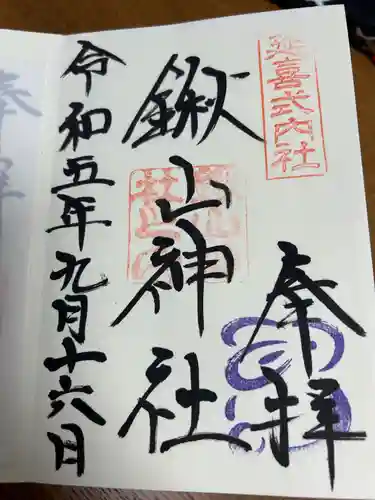 延喜式内社
奉拝
鍬山神社
令和五年九月十六日